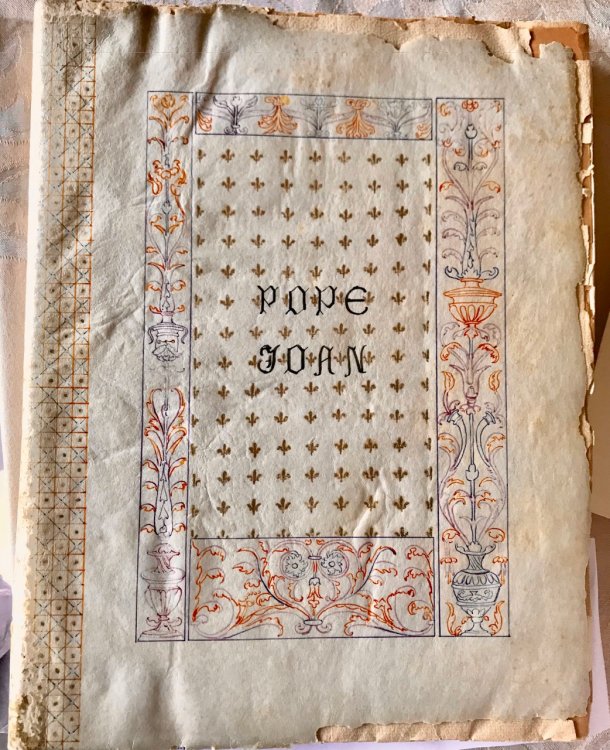 POPE
JOAN